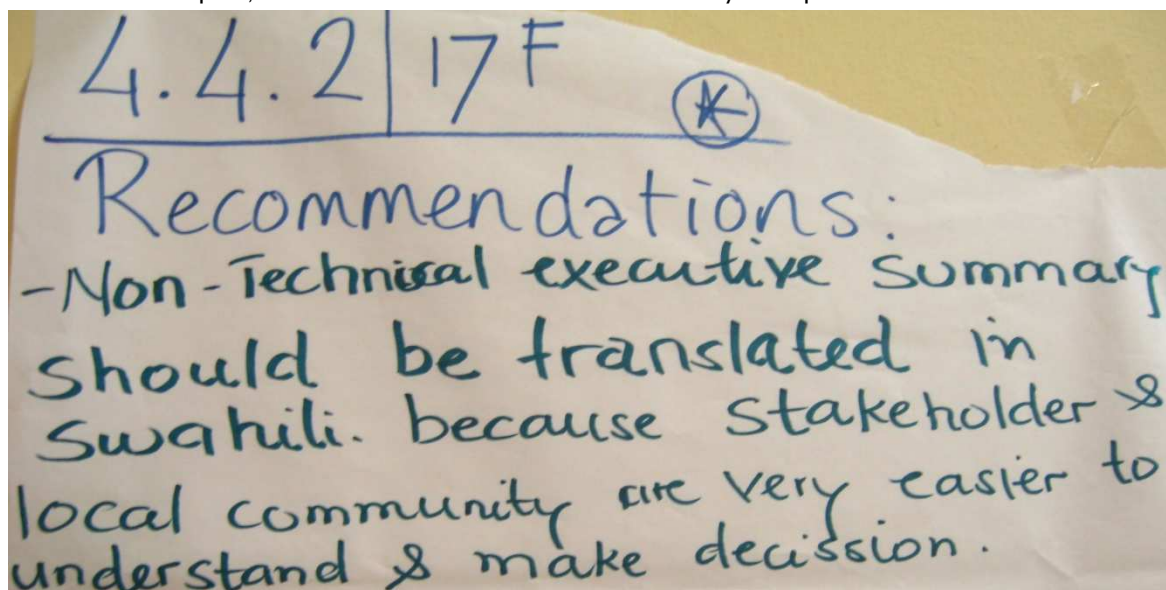 4.4.2 | 17F
Recommendations:
- Non-Technical executive summary
should be translated in
Swahili. because stakeholder &
local community are very easier to
understand & make decission.